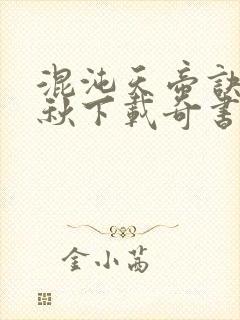 混沌天帝訣
秋下載奇書
金小茜